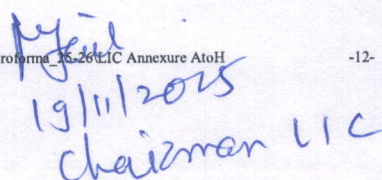 roforma_25-26\LIC Annexure AtoH -12-
19/11/2025
Chairman LIC